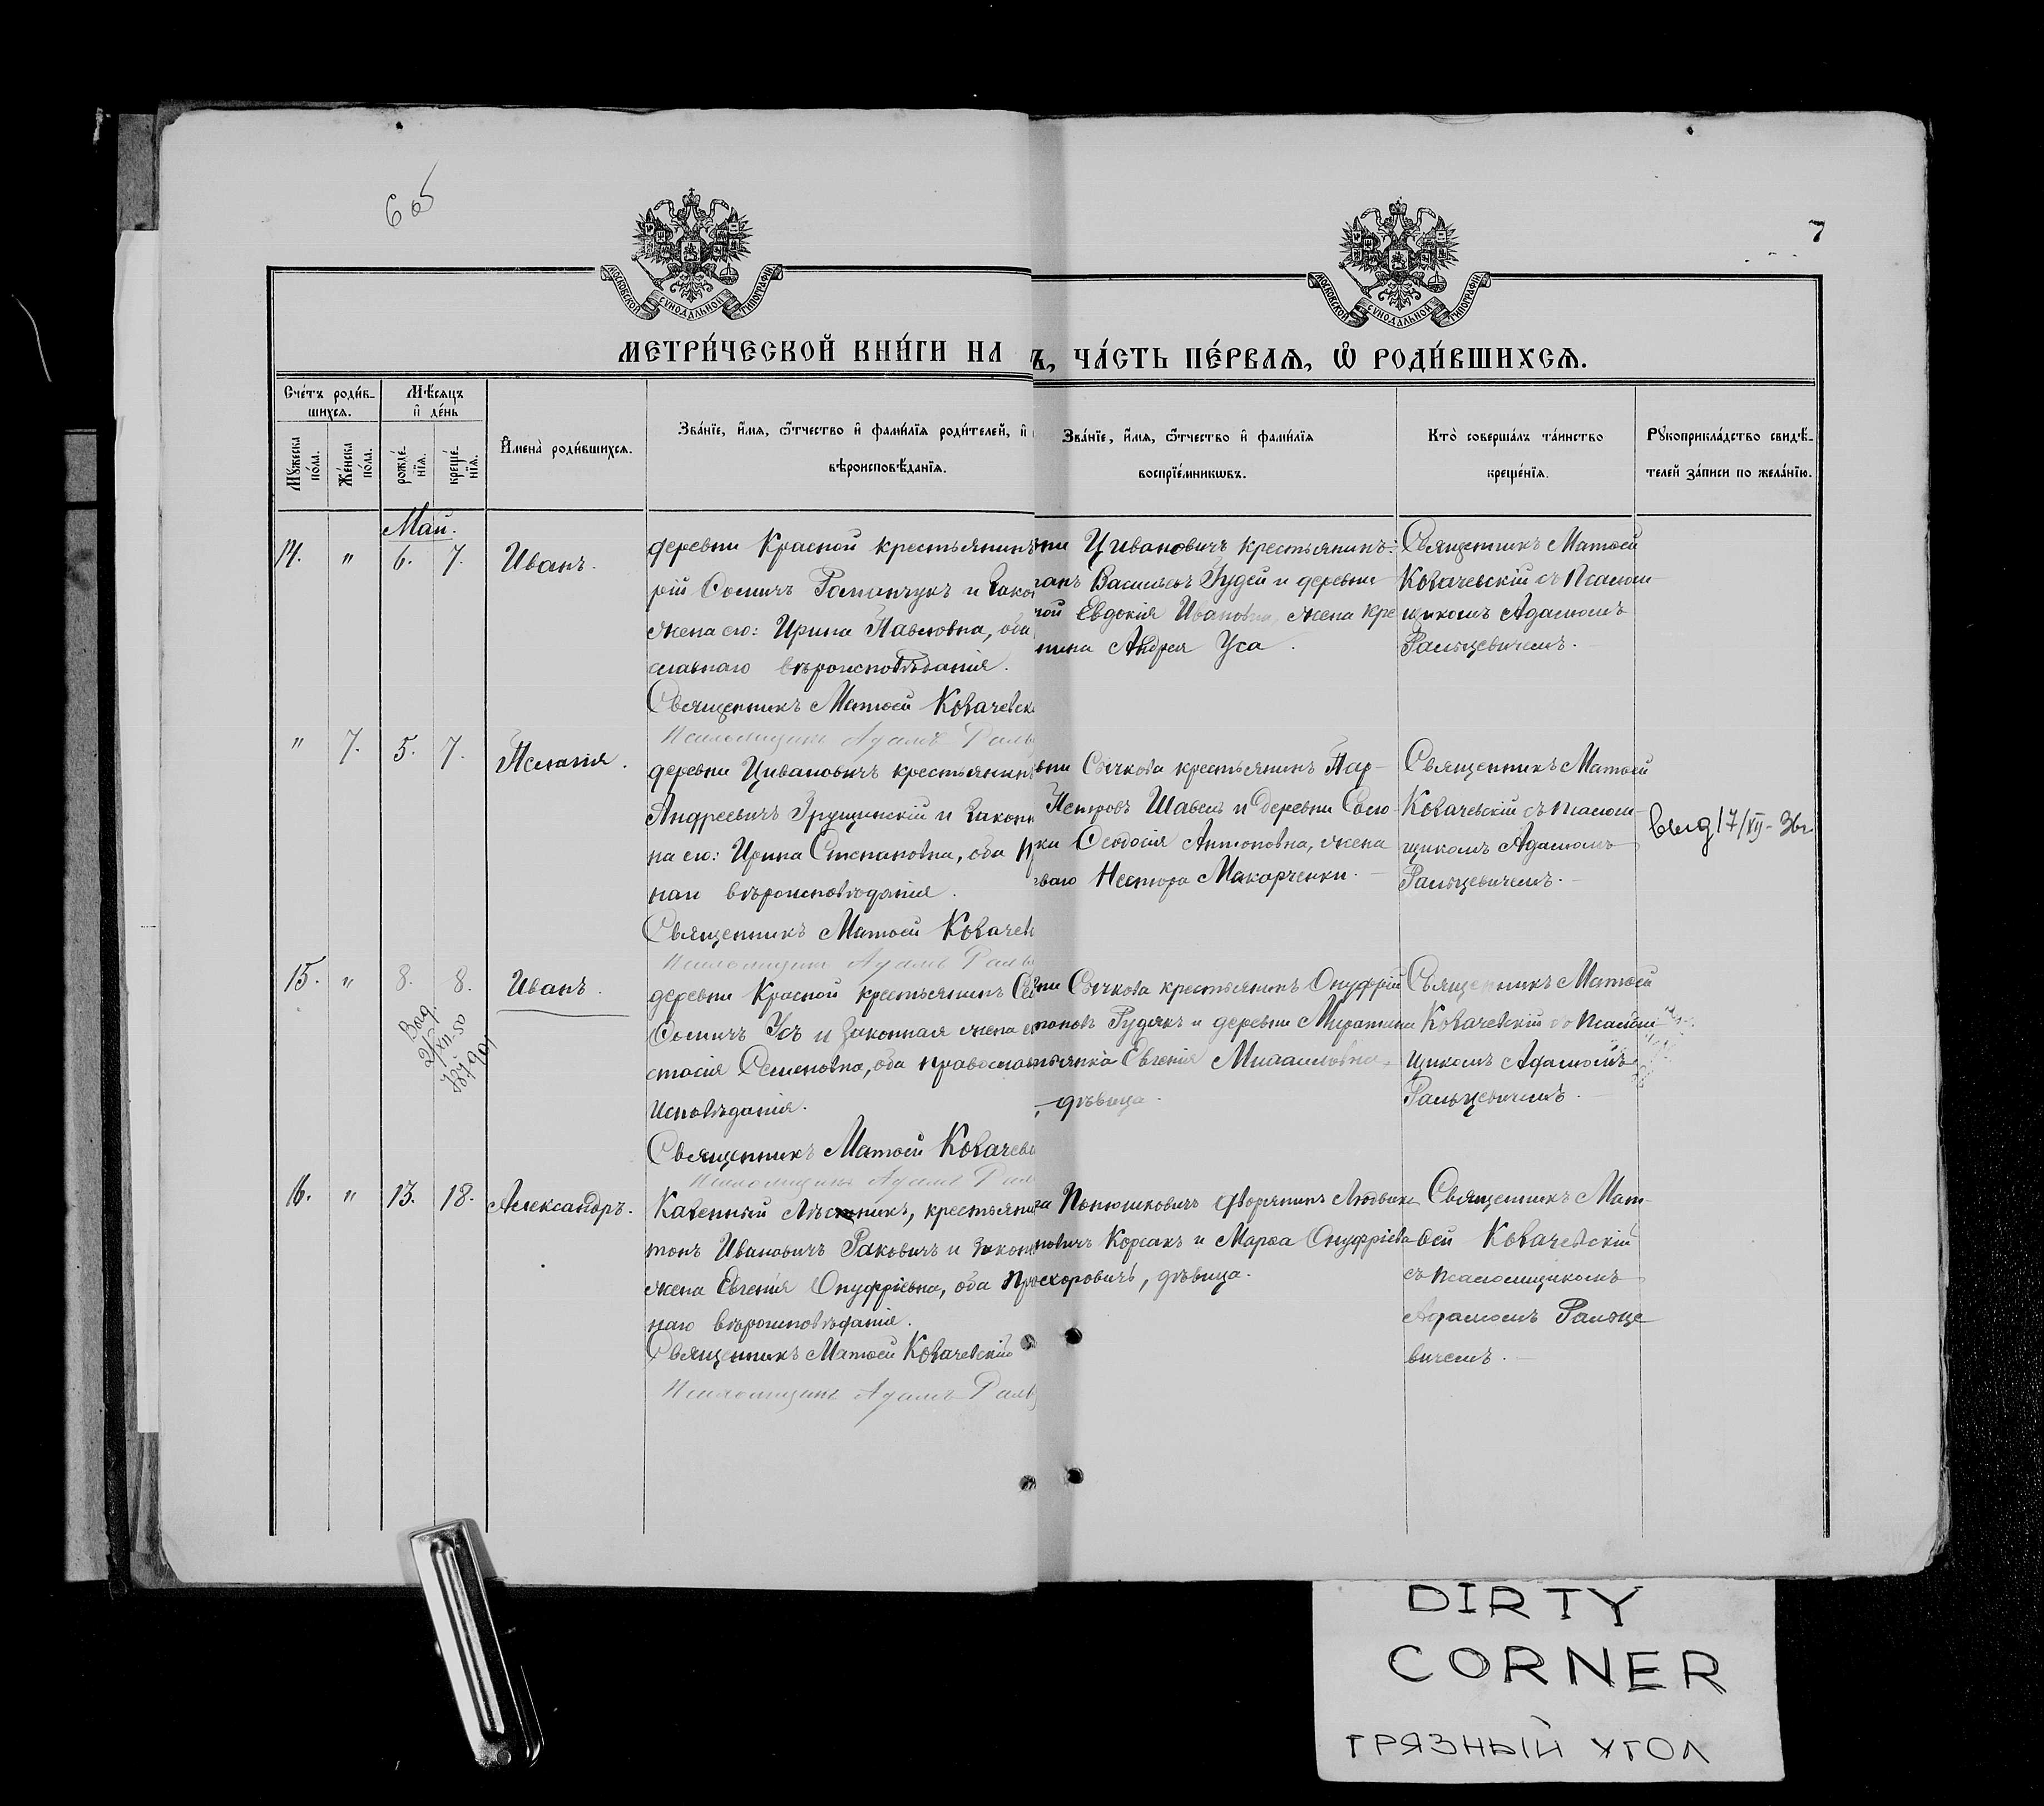 6 об
7
МОСКОВСКОЙ СѴНОДАЛЬНОЙ ТИПОГРАФІИ
МОСКОВСКОЙ СѴНОДАЛЬНОЙ ТИПОГРАФІИ
МЕТРИ́ЧЕСКОЙ КНИ́ГИ НА
Ъ, ЧА́СТЬ ПЕ́РВАѦ, Ѽ РОДИ́ВШИХСѦ.
Сче́тъ роди́в-
шихсѧ.
Мѣ́сѧцъ
и҆ де́нь
Мꙋ́жеска по́ла.
Же́нска по́ла.
рожде́нїѧ.
креще́нїѧ.
И҆мена̀ роди́вшихсѧ.
Зва́нїе, и҆́мѧ, ѻ҆́тчество и҆ фами́лїѧ роди́телей, и҆
вѣроисповѣ́данїѧ.
Зва́нїе, и҆́мѧ, ѻ҆́тчество и҆ фами́лїѧ
воспрїе́мникѡвъ.
Кто̀ соверша́лъ та́инство
креще́нїѧ.
Рꙋкоприкла́дство свидѣ́-
телей за́писи по жела́нїю.
Май.
14. " 6. 7. Иванъ.
деревни Красной крестьянинъ
рій Ѳомичъ Романчукъ и зако
жена его: Ирина Павловна, оба
славнаго вѣроисповѣданія.
Священникъ Матѳей Ковачевск
Псаломщикъ Адамъ Раль
ни Циванович крестьянинъ:
ванъ Васильевъ Гудей и деревни
ной Евдокія Ивановна, жена кре
нина Андрея Уса.
Священникъ Матѳей
Ковачевскій съ псалом-
щикомъ Адамомъ
Ральцевичемъ.
" 7. 5. 7. Пелагія.
деревни Циванович крестьянинъ
Андреевичъ Грущинскій и закон
на его: Ирина Степановна, оба п
наго вѣроисповѣданія.
Священникъ Матѳей Ковачев
Псаломщикъ Адамъ Раль
вни Сычкова крестьянинъ Пар-
Петровъ Шавель и деревни
ка Ѳеодосія Антоновна, жена
Нестора Макарченки.
Священникъ Матѳей
Ковачевскій съ псалом-
щикомъ Адамомъ
Ральцевичемъ.
выд 17/XII-36г
15. " 8. 8. Иванъ.
Выд.
2/XII.50
деревни Красной крестьянинъ
Ѳомичъ Усъ и законная жена е
стасія Семеновна, оба православ
исповѣданія.
Священникъ Матѳей Ковачевс
Псаломщикъ Адамъ Раль
ни Сычкова крестьянинъ Онуфрій
Рудякъ и деревни Миратина
тьянка Евгенія Михаиловна
дѣвица.
Священникъ Матѳей
Ковачевскій со псалом-
щикомъ Адамомъ
Ральцевичемъ.
16. " 13. 18. Александръ.
Казенный лѣсникъ, крестьяни
тонъ Ивановичъ Раковичъ и закон
жена Евгенія Онуфріевна, оба пр
наго вѣроисповѣданія.
Священникъ Матѳей Ковачевскій
Псаломщикъ Адамъ Раль
ка дворянинъ Людвикъ
новичъ Корсакъ и Марѳа Онуфріева
схоровичъ, дѣвица.
Священникъ Мат-
ѳей Ковачевскій
съ псаломщикомъ
Адамомъ Ральце
вичемъ.
DIRTY
CORNER
ГРЯЗНЫЙ УГОЛ